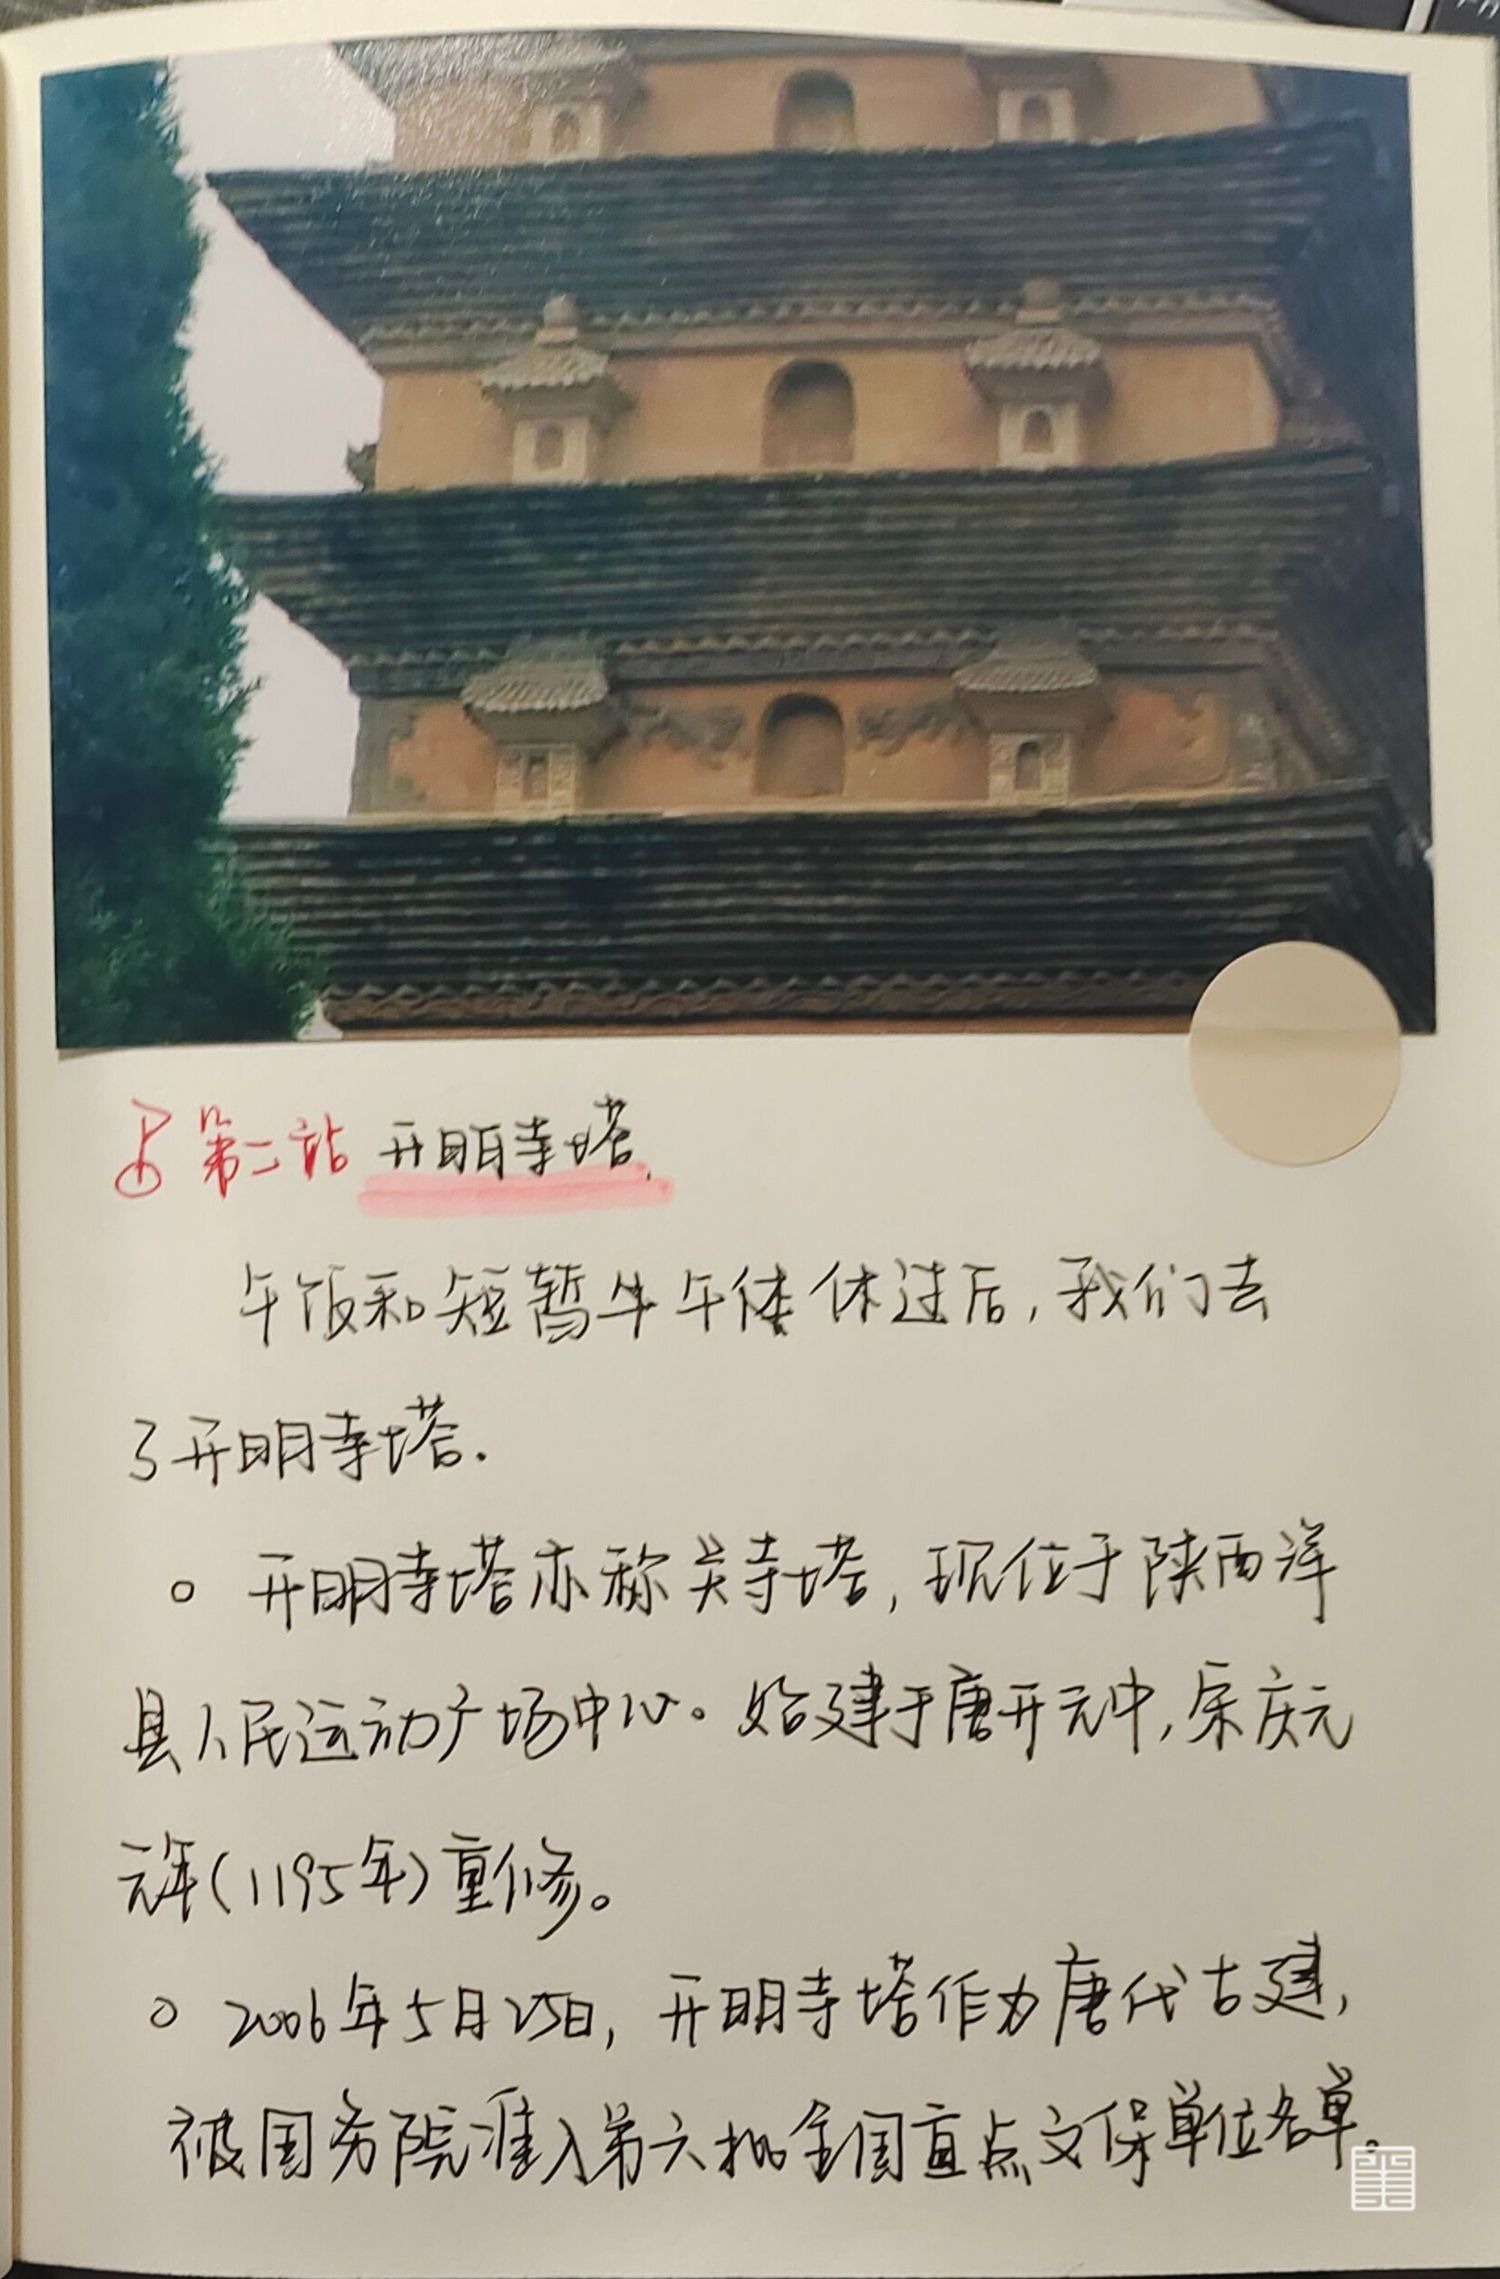 第二站 开明寺塔.
午饭和短暂午午休休过后,我们去
了开明寺塔.
开明寺塔亦称关寺塔,现位于陕西洋
县人民运动广场中心。始建于唐开元中,宋庆元
元年(1195年)重修。
2006年5月25日,开明寺塔作为唐代古建,
被国务院准入第六批全国重点文保单位名单。